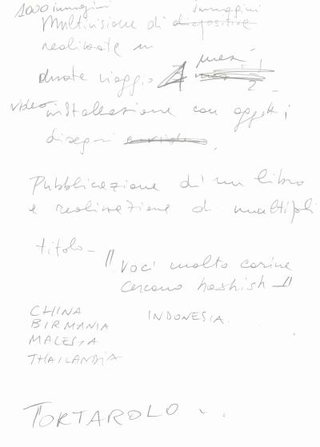 1000 immagini immagini
Multivisione di diapositive
realizzate in
durate viaggio 4 mesi
video installazione con oggetti
disegni
Pubblicazione di un libro
e realizzazione di multipli
titolo -
"Voci molto carine
cercano hashish"
CHINA INDONESIA
BIRMANIA
MALESIA
THAILANDIA
TORTAROLO